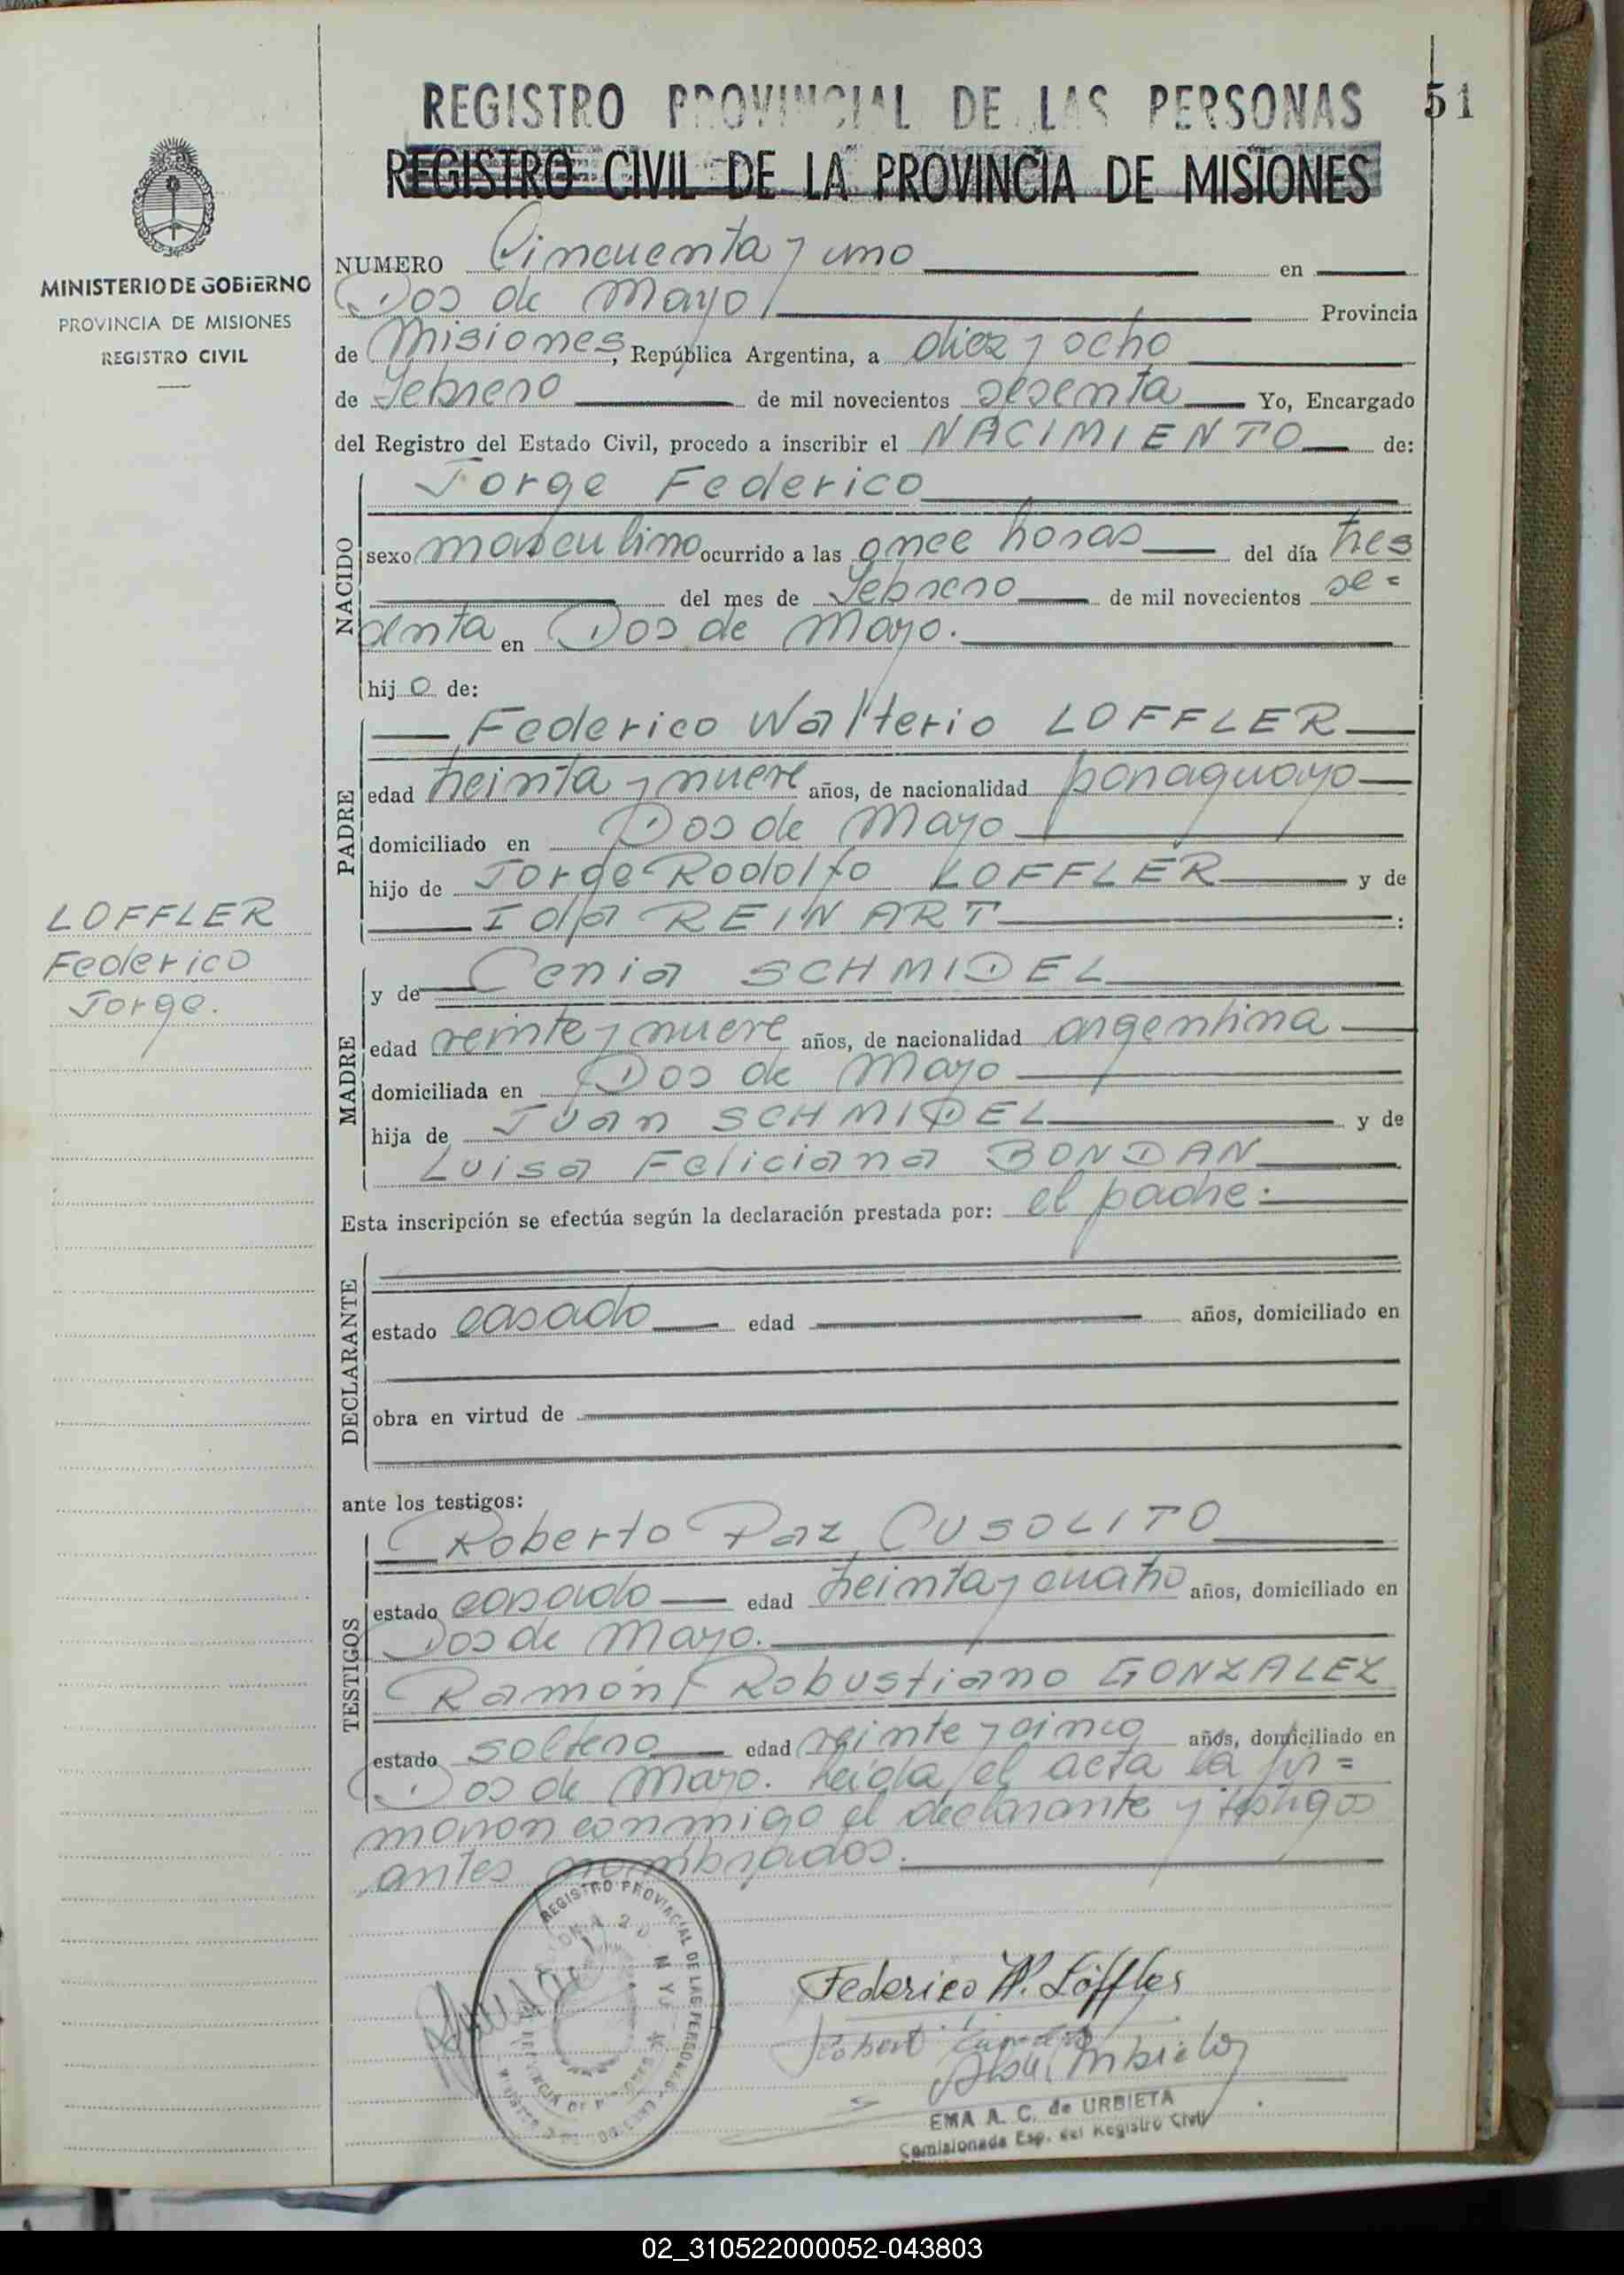 REGISTRO PROVINCIAL DE LAS PERSONAS
51
REGISTRO CIVIL DE LA PROVINCIA DE MISIONES
MINISTERIO DE GOBIERNO
PROVINCIA DE MISIONES
REGISTRO CIVIL
NUMERO Cincuenta y uno en
Dos de Mayo Provincia
de Misiones, República Argentina, a diez y ocho
de Febrero de mil novecientos sesenta Yo, Encargado
del Registro del Estado Civil, procedo a inscribir el NACIMIENTO de:
NACIDO
Jorge Federico
sexo masculino ocurrido a las once horas del día tres
del mes de Febrero de mil novecientos se=
senta en Dos de Mayo.
hijo de:
PADRE
Federico Walterio LOFFLER
edad treinta y nueve años, de nacionalidad paraguayo
domiciliado en Dos de Mayo
hijo de Jorge Rodolfo LOFFLER y de
Ida REINART
LOFFLER
Federico
Jorge.
MADRE
y de Cenia SCHMIDEL
edad veinte y nueve años, de nacionalidad argentina
domiciliada en Dos de Mayo
hija de Juan SCHMIDEL y de
Luisa Feliciana BONDAN
Esta inscripción se efectúa según la declaración prestada por: el padre.
DECLARANTE
estado casado edad años, domiciliado en
obra en virtud de
ante los testigos:
TESTIGOS
Roberto Paz CUSOLITO
estado casado edad treinta y cuatro años, domiciliado en
Dos de Mayo.
Ramón Robustiano GONZALEZ
estado soltero edad veinte y cinco años, domiciliado en
Dos de Mayo. Leída el acta la fir=
maron conmigo el declarante y testigos
antes nombrados.
REGISTRO PROVINCIAL DE LAS PERSONAS
Federico W. Löffler
EMA A. C. de URBIETA
Comisionada Esp. del Registro Civil
02_310522000052-043803